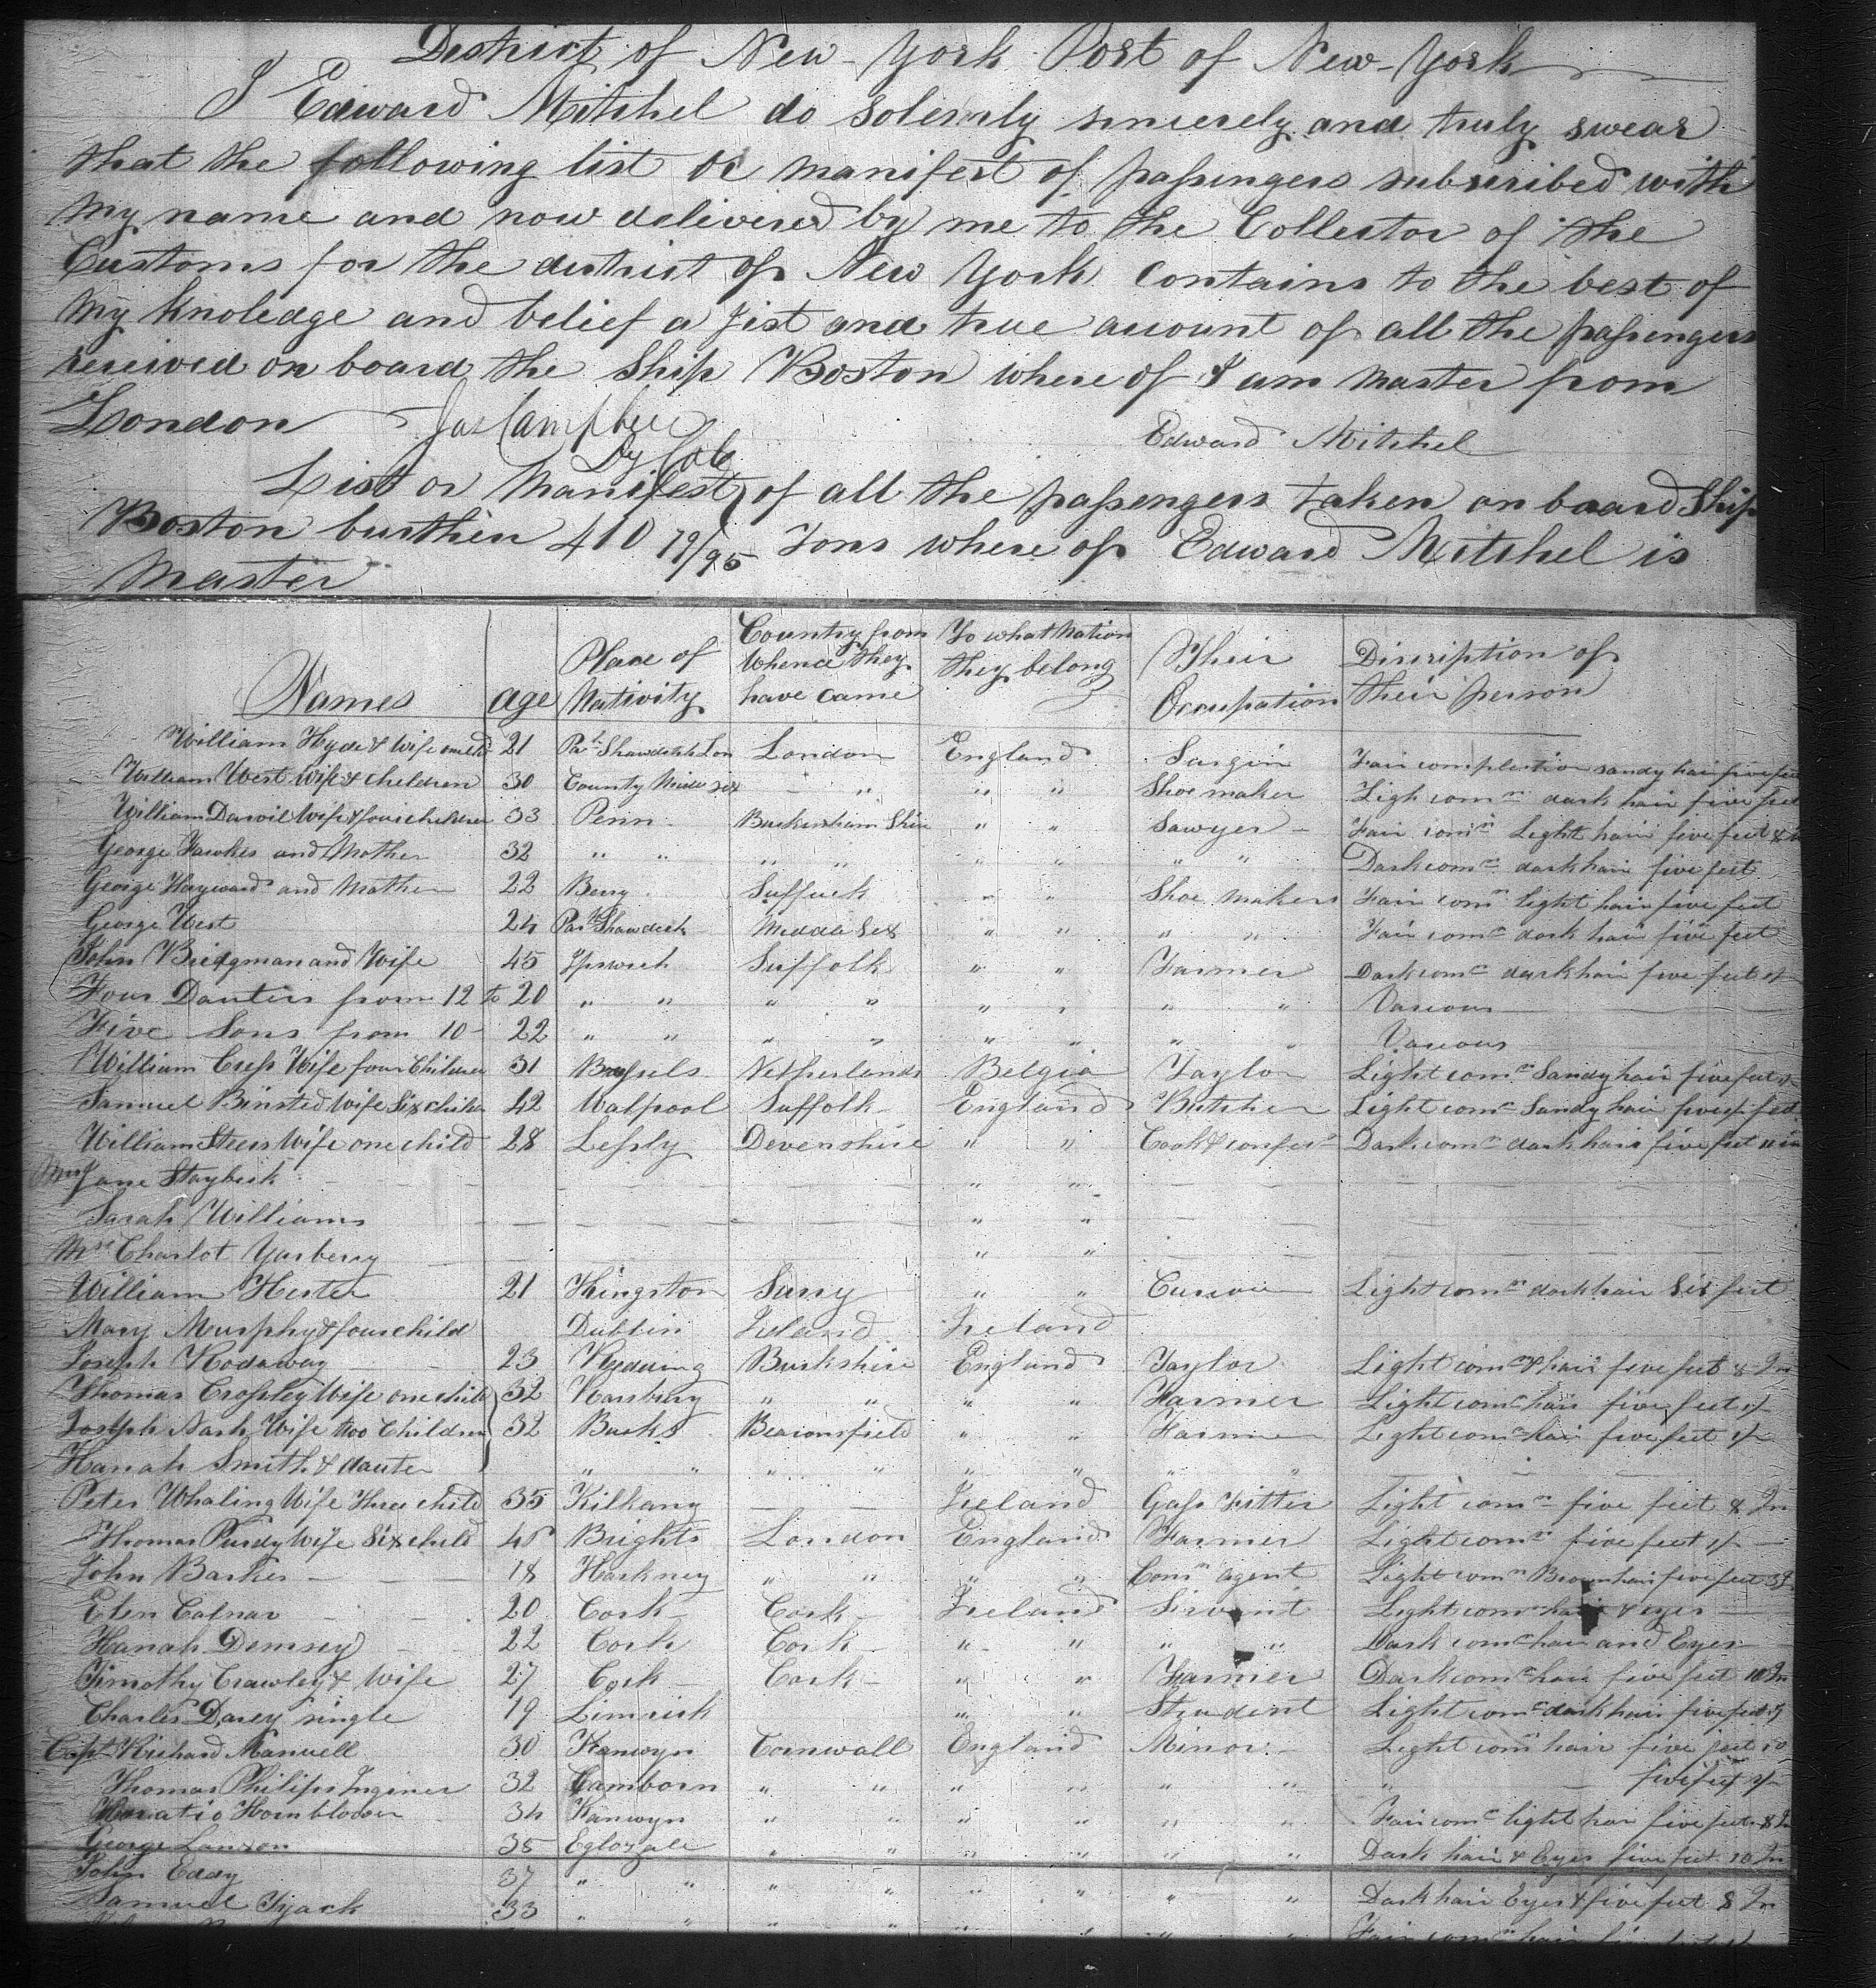 District of New-York Port of New-York
I Edward Mitchel do solemnly sincerely and truly swear
that the following list or manifest of passengers subscribed with
my name and now delivered by me to the Collector of the
Customs for the district of New York contains to the best of
my knoledge and belief a jist and true account of all the passengers
received on board the Ship Boston where of I am master from
London Jas Campbell Edward Mitchel
Dy Col
List or Manifest of all the passengers taken on board Ship
Boston burthen 410 19/95 Tons where of Edward Mitchel is
Master
Names age Place of Nativity Country from Whence they have came To what Nation they belong Their Occupation Discription of their person
William Hyde & Wife 21 London England Surgin Fair complection sandy hair five feet
William West Wife & children 30 County Middlesex " " " Shoe maker Ligh comn dark hair five feet
William Wife & four children 33 Penn Buckinham Shire " " Sawyer Fair comn Light hair five feet
George Fawkes and Mother 32 " " " " " " " " Dark comn dark hair five feet
George Hayward and Mother 22 Berry Suffuck " " Shoe makers Fair comn light hair five feet
George West 24 Middle Sex " " " " Fair comn dark hair five feet
John Bridgman and Wife 45 Ipswich Suffolk " " Farmer Dark comn dark hair five feet
Four Dauters from 12 to 20 " " " " " " " " Vareous
Five Sons from 10 - 22 " " " " " " " " Vareous
William Cress Wife four Children 31 Brussels Netherlands Belgia Taylor Light comn Sandy hair five feet
Samuel Binsted Wife Six childn 42 Walpool Suffolk England Butcher Light comn Sandy hair five feet
William Steers Wife one child 28 Lessly Devenshire " " Cook & confec Dark comn dark hair five feet
Mrs Jane Staybeck " "
Sarah Williams " "
Mrs Charlot Yarberry " "
William Hester 21 Kingston Surry " " Light comn dark hair Six feet
Mary Murphy & four child Dublin Ireland Ireland
Joseph Rodaway 23 Redding Burkshire England Taylor Light comn & hair five feet 8 In
Thomas Crossley Wife one child 32 " " " " Farmer Light comn hair five feet
Joseph Nash Wife two Children 32 Bucks Beaconsfield " " Farmer Light comn hair five feet
Hanah Smith & dauter " " " " " " " "
Peter Whaling Wife three child 35 Kilkany Ireland Gass Fitter Light comn five feet 8 In
Thomas Purdy Wife Six child Brights London England Farmer Light comn five feet
John Barker 18 Hackney " " " " Comn agent Light comn Brown hair five feet
Elen Calnar 20 Cork Cork Ireland Servant Light comn hair & eyes
Hanah Demsey 22 Cork Cork " " " " Dark comn hair and Eyes
Timothy Crawley & Wife 27 Cork Cork " " Farmer Dark comn hair five feet 10 In
Charles Darey single 19 Limrick " " Student Light comn dark hair five feet
Capt Richard Manuell 30 Kanwyn Cornwall England Minor Light comn hair five feet 10
Thomas Philips Inginer 32 Camborn " " " " " " " five feet
Horatio Hornblower 34 Kanwyn " " " " " " Fair comn light hair five feet 8 In
George Lanxon 35 " " " " " " Dark hair & Eyes five feet 10 In
John Eddy 37 " " " " " " " " Dark hair Eyes & five feet 8 In
Samuel Tyack 33 " " " " " " " "